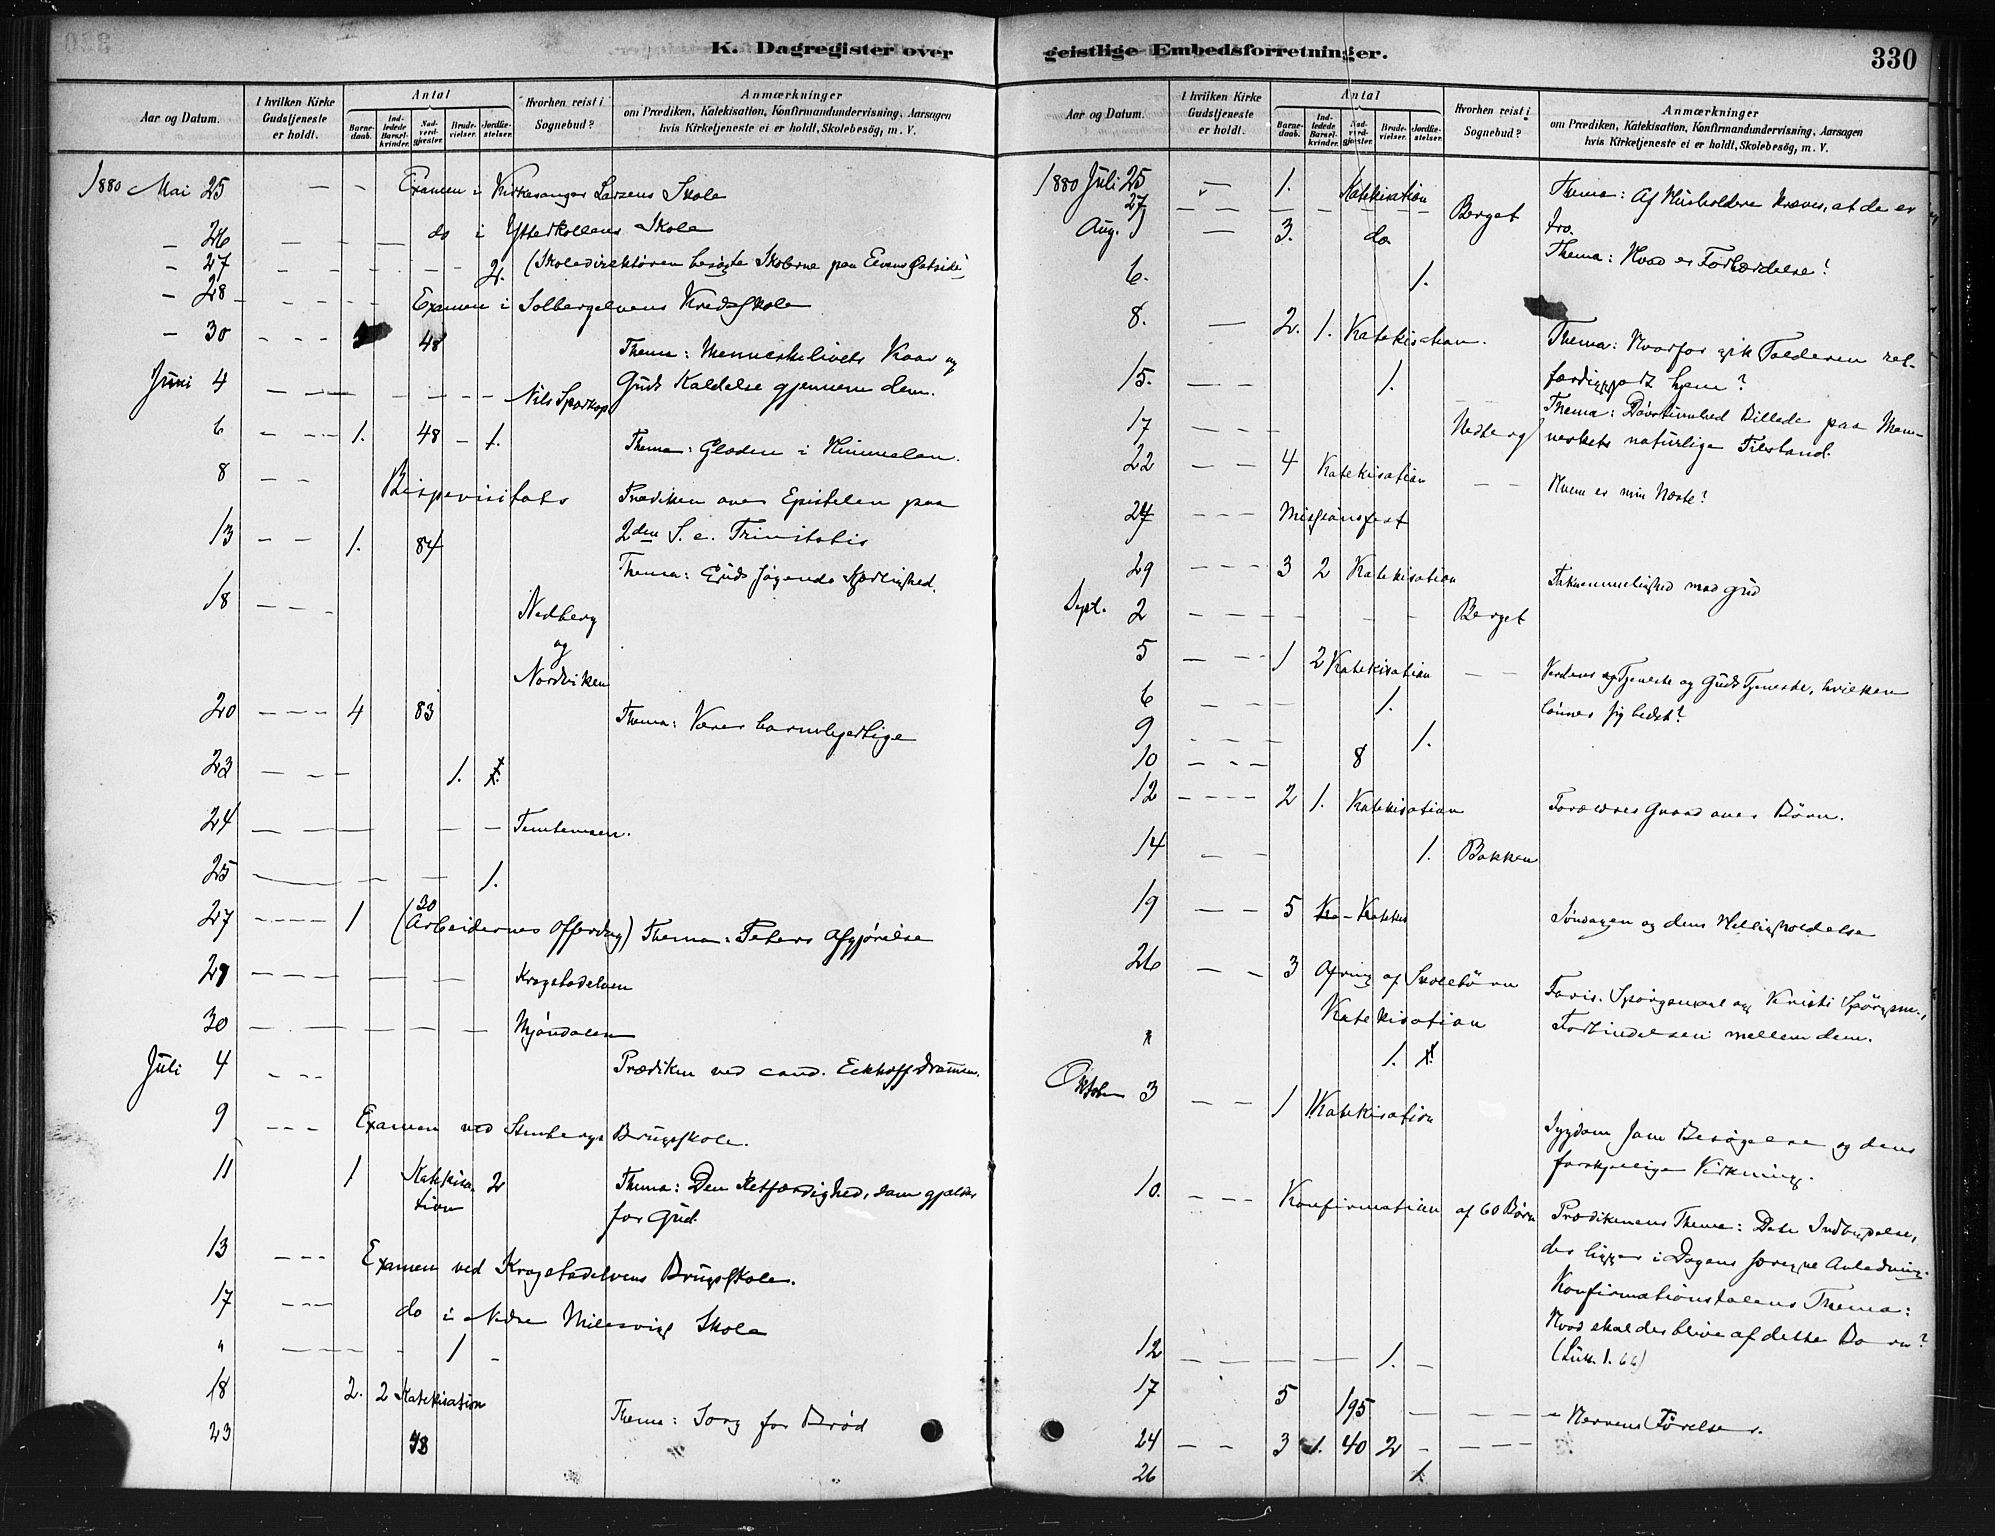 K. Dagregister over
Aar og Datum.
I hvilken Kirke Gudstjeneste er holdt.
Antal
Barnedaab.
Indledede Barselkvinder.
Nadverdgjæster.
Brudevielser.
Jordfæstelser.
Hvorhen reist i Sognebud?
Anmærkninger
om Prædiken, Katekisation, Konfirmandundervisning, Aarsagen
hvis Kirketjeneste ei er holdt, Skolebesög, m. V.
1880 Mai 25 — - Examen i Kirkesanger Larsens Skole
— 26 — — — do i Ytterkollens Skole
— 27 — — — — 2. (Skoledirektören besøgte Skolerne paa Elvens Østside)
— 28 — — — Examen i Solbergelvens Kredsskole
— 30 - - - 48 Thema: Menneskelivets Kaar og
Guds Kaldelse gjennem dem.
Juni 4 — — — — — Nils
6 — — 1. 48 — 1. Thema: Glæden i Himmelen.
8 — — Bispevisitats Prædiken over Epistelen paa
2den S. e. Trinitatis
13 — — 1. 84 Thema: Guds søgende Kjærlighed.
18 — — — Nedberg
og
Nordviken
20 — — — 4 83 Thema: Værer barmhjertige
23 — — — 1.
24 — — — — —
25 — — — — 1.
27 — — — 1 30 (Arbeidernes Offerdag) Thema: Peters Afgjørelse
29 — — — — Krogstadelven
30 — — — — — Mjøndalen
Juli 4 — — — Prædiken ved cand. Eckhoff Drammen.
9 — — — Examen ved Stenbergs Brugsskole.
11 1 Katekisation 2 Thema: Den Retfærdighed, som gjælder
for Gud.
13 — — — Examen ved Krogstadelvens Brugsskole.
17 — — — do i Nedre Milesvig Skole
" — — — — 1 -
18 2. 2 Katekisation Thema: Sorg for Brød
23 48
geistlige Embedsforretninger.
330
Aar og Datum.
I hvilken Kirke Gudstjeneste er holdt.
Antal
Barnedaab.
Indledede Barselkvinder.
Nadverdgjæster.
Brudevielser.
Jordfæstelser.
Hvorhen reist i Sognebud?
Anmærkninger
om Prædiken, Katekisation, Konfirmandundervisning, Aarsagen
hvis Kirketjeneste ei er holdt, Skolebesög, m. V.
1880 Juli 25 — 1. Katekisation Thema: Af Husholdere kræves, at de er
tro.
27 — — — — — — Berget
Aug. 1 — 3. do. Thema: Hvad er Forfærdelse?
6. 1.
8. — 2. 1. Katekisation. Thema: Hvorfor gik Tolderen retfærdiggjort hjem?
15. — — 1. Thema: Døvstumhed Billede paa Menneskets naturlige Tilstand.
17 — — — Nedberg
22 — — 4 Katekisation — — Hvem er min Næste?
24 — — — Missionsfest
29 — — — 3 2 Katekisation Taknemmelighed mod Gud
Sept. 2 — — — — — — Berget
5 — — — 1 2 Katekisation — — Verdens Tjeneste og Guds Tjeneste, hvilken
lønner sig bedst?
6 — — — 1.
9 — — — 1.
10 — — — 8
12 — — — — 2 1. Katekisation Forældres Graad over Børn.
14 — — 1. Bakken
19 — — 5 Katekis Søndagen og dens Helligholdelse
26 — — 3 af Skolebørn
Katekisation
Faris. Spørgsmaal og Kristi Spørgsm.,
Forbindelsen mellem dem.
1.
Oktober 3 — — 1 Katekisation Sygdom som Besøgelse og dens
forskjellige Virkning.
10. — — — Konfirmation af 60 Børn Prædikenens Thema: Dete Indbydelse,
der ligger i Dagens særegne Anledning.
Konfirmationstalens Thema:
Hvad skal der blive af dette Barn?
(Luk. 1. 66)
12 — — — — — 1. —
17 5 195 — — — — Herrens Førelser.
24 — — 3 1. 40 2 — — — —
26 1.